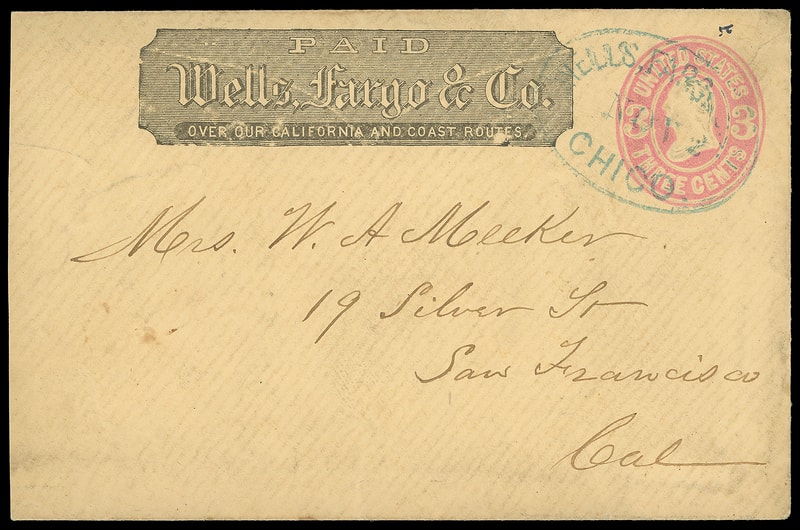 PAID
Wells, Fargo & Co.
OVER OUR CALIFORNIA AND COAST ROUTES.
WELLS, FARGO
NOV 2
CHICO.
UNITED STATES
3 3
THREE CENTS
Mrs. W. A Meeker
19 Silver St
San Francisco
Cal